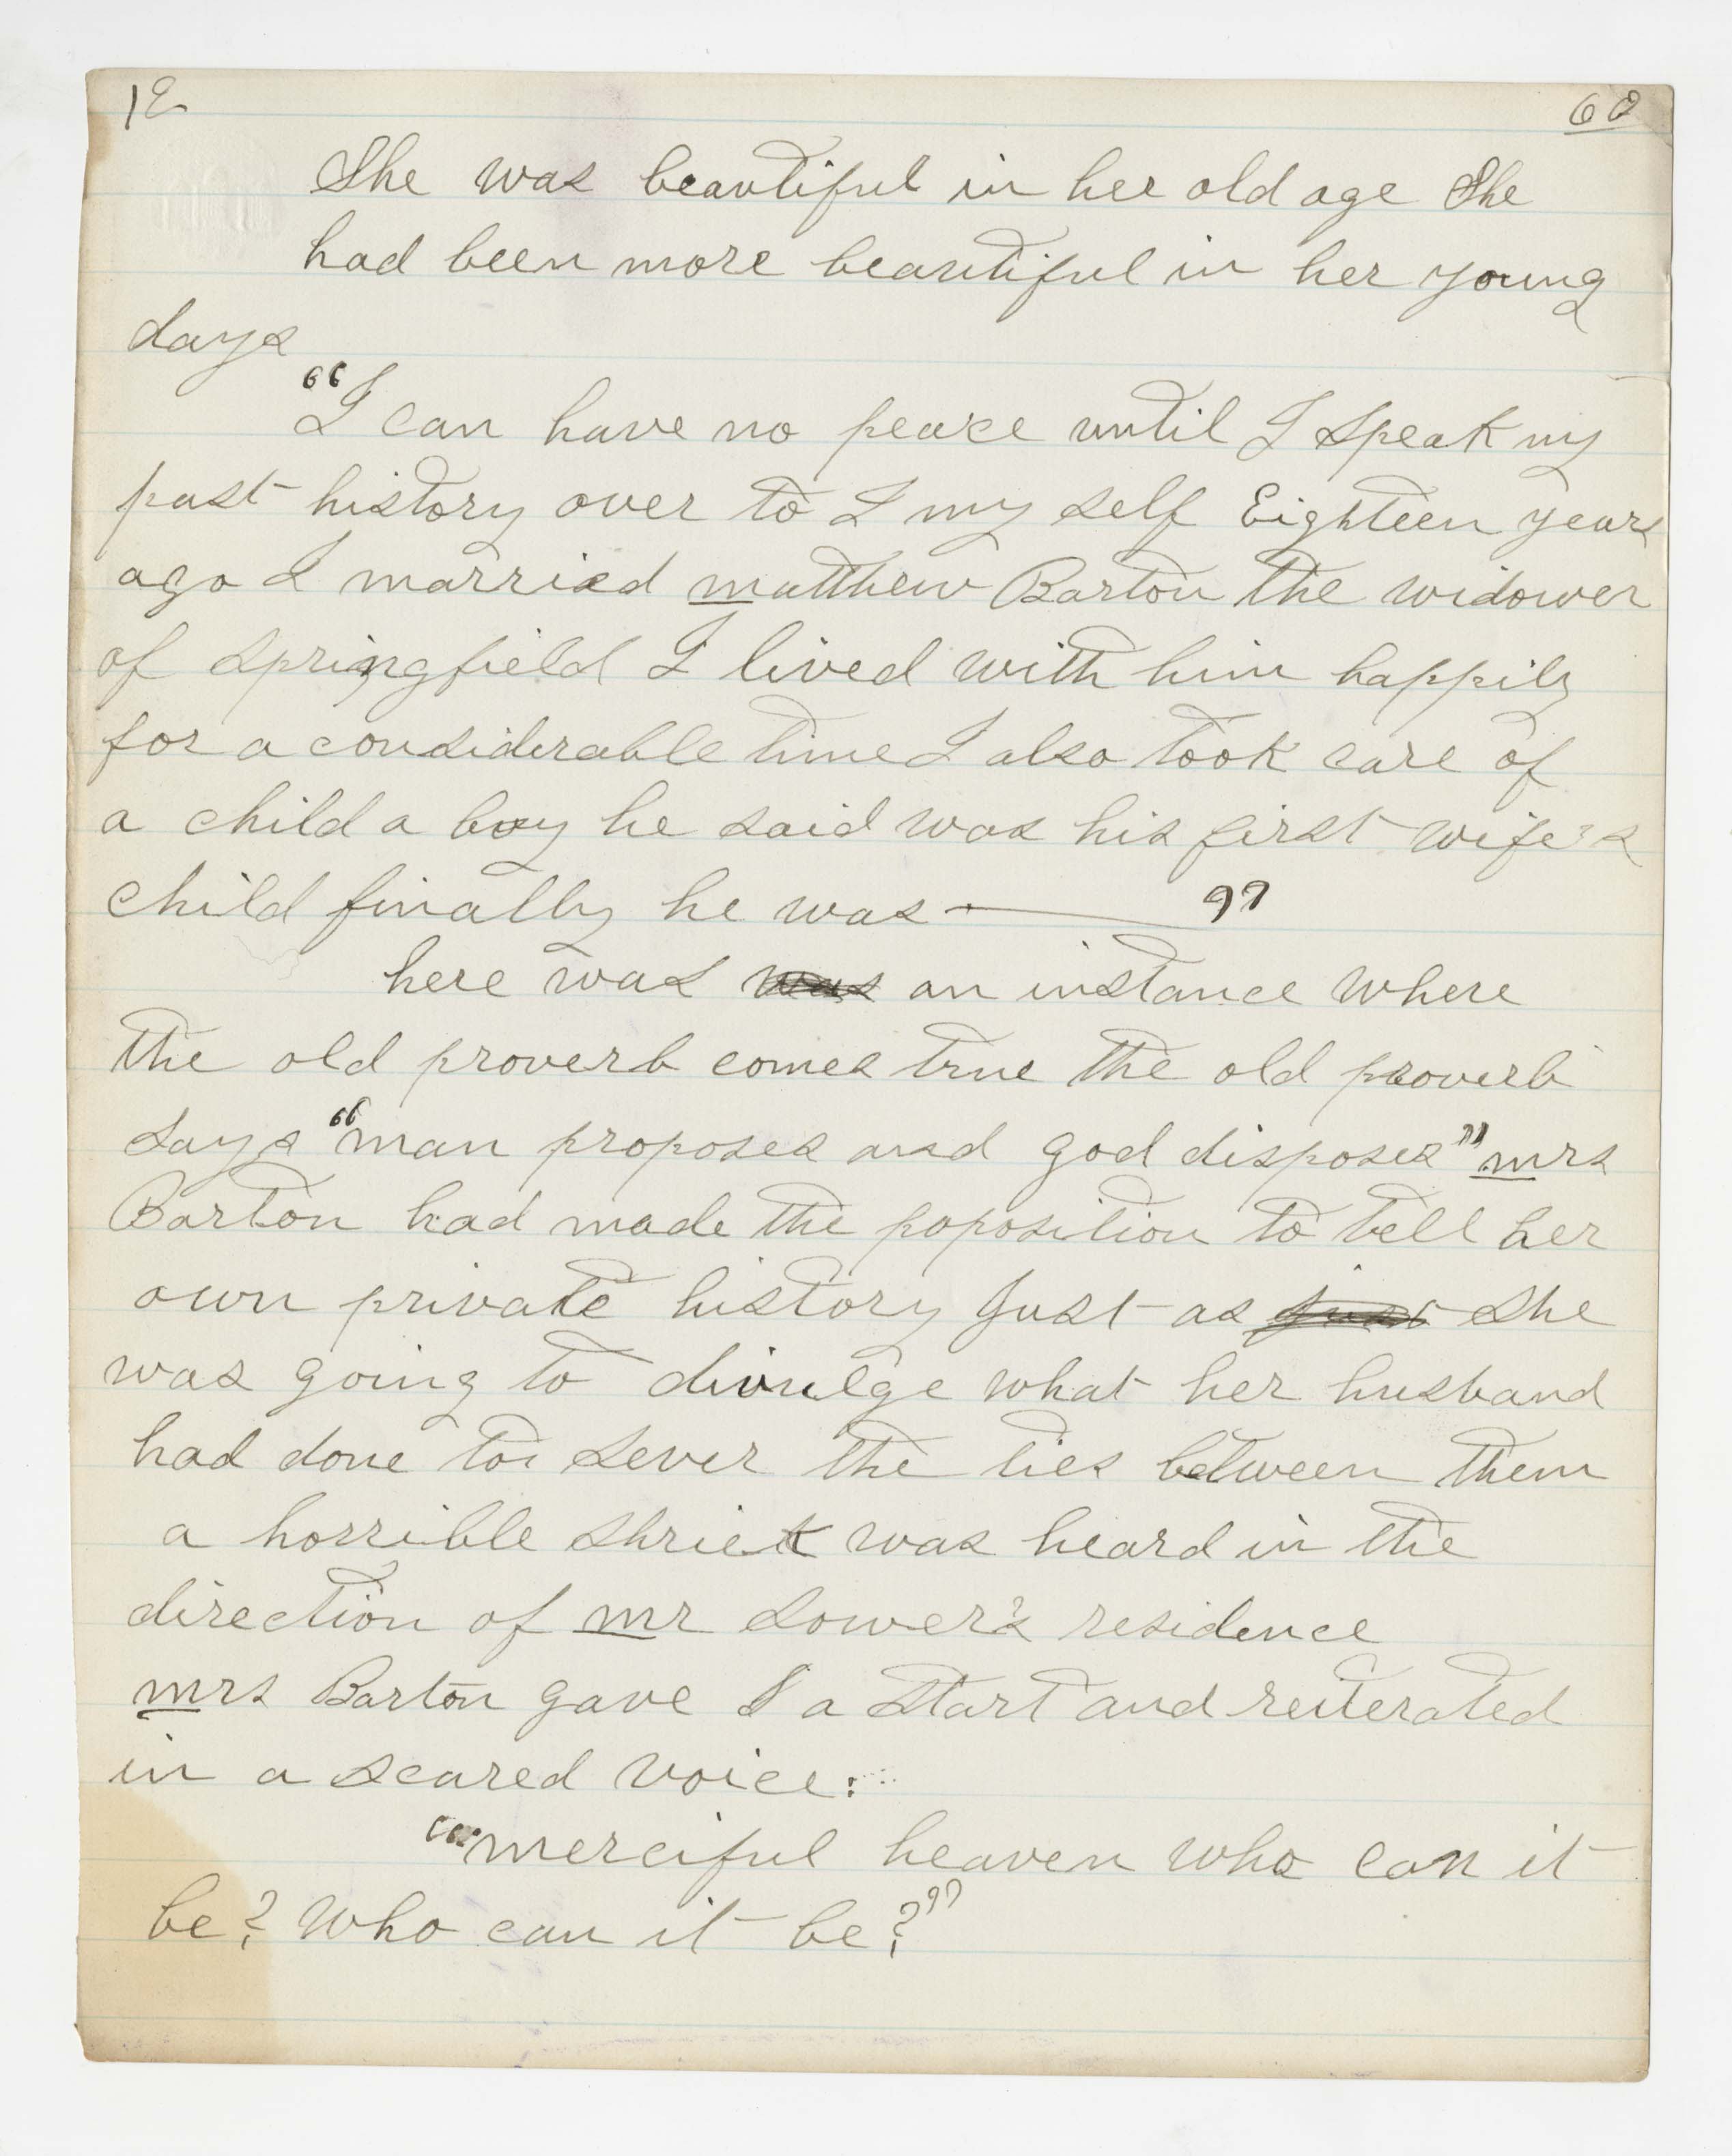 12 60
She was beautiful in her old age She
had been more beautiful in her young
days
"I can have no peace until I speak my
past history over to I my self Eighteen years
ago I married matthew Barton the widower
of Springfield I lived with him happily
for a considerable time I also took care of
a child a boy he said was his first wife's
child finally he was — "
here was was an instance where
the old proverb comes true the old proverb
says "man proposes and god disposes" mrs
Barton had made the poposition to tell her
own private history Just as just she
was going to divulge what her husband
had done to sever the ties between them
a horrible shriek was heard in the
direction of mr Lower's residence
mrs Barton gave a start and reiterated
in a scared voice:
"merciful heaven who can it
be? Who can it be?"